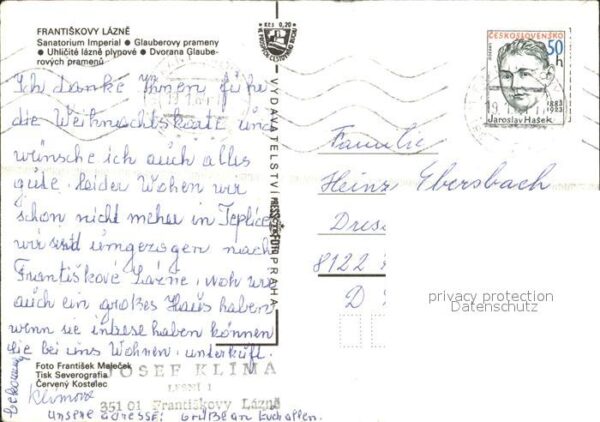 FRANTIŠKOVY LÁZNĚ
Sanatorium Imperial • Glauberovy prameny
• Uhličité lázně plynové • Dvorana Glaube-
rových pramenů
Kčs 0,20
ČESKOSLOVENSKO
50 h
1883
1923
Jaroslav Hašek
Ich danke Ihnen für
die Weihnachtskarte und
wünsche ich auch alles
gute. Leider Wohen wir
schon nicht meher in Teplice
wir sind umgezogen nach
Františkové Lázne, woh wir
auch ein großes Haus haben
wenn sie
haben können
sie bei uns Wohnen, unterkuft.
Klimova
VYDAVATELSTVÍ PRESSFOTO PRAHA
Familie
Heinz Ebersbach
Dres
8122
D
privacy protection
Datenschutz
Foto František Maleček
Tisk Severografia
Červený Kostelec
JOSEF KLÍMA
LESNÍ 1
351 01 Františkovy Lázně
unsere adresse: Grüße an Euch allen.